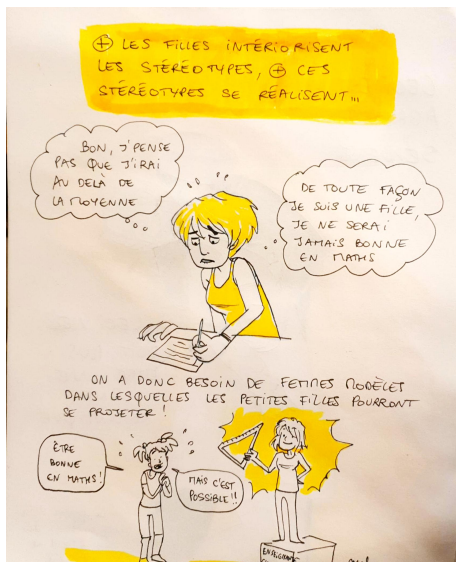 ⊕ LES FILLES INTÉRIORISENT
LES STÉRÉOTYPES, ⊕ CES
STÉRÉOTYPES SE RÉALISENT...
BON, J'PENSE
PAS QUE J'IRAI
AU DELÀ DE
LA MOYENNE
DE TOUTE FAÇON
JE SUIS UNE FILLE,
JE NE SERAI
JAMAIS BONNE
EN MATHS
ON A DONC BESOIN DE FEMMES MODÈLES
DANS LESQUELLES LES PETITES FILLES POURRONT
SE PROJETER !
ÊTRE
BONNE
EN MATHS !
MAIS C'EST
POSSIBLE !!